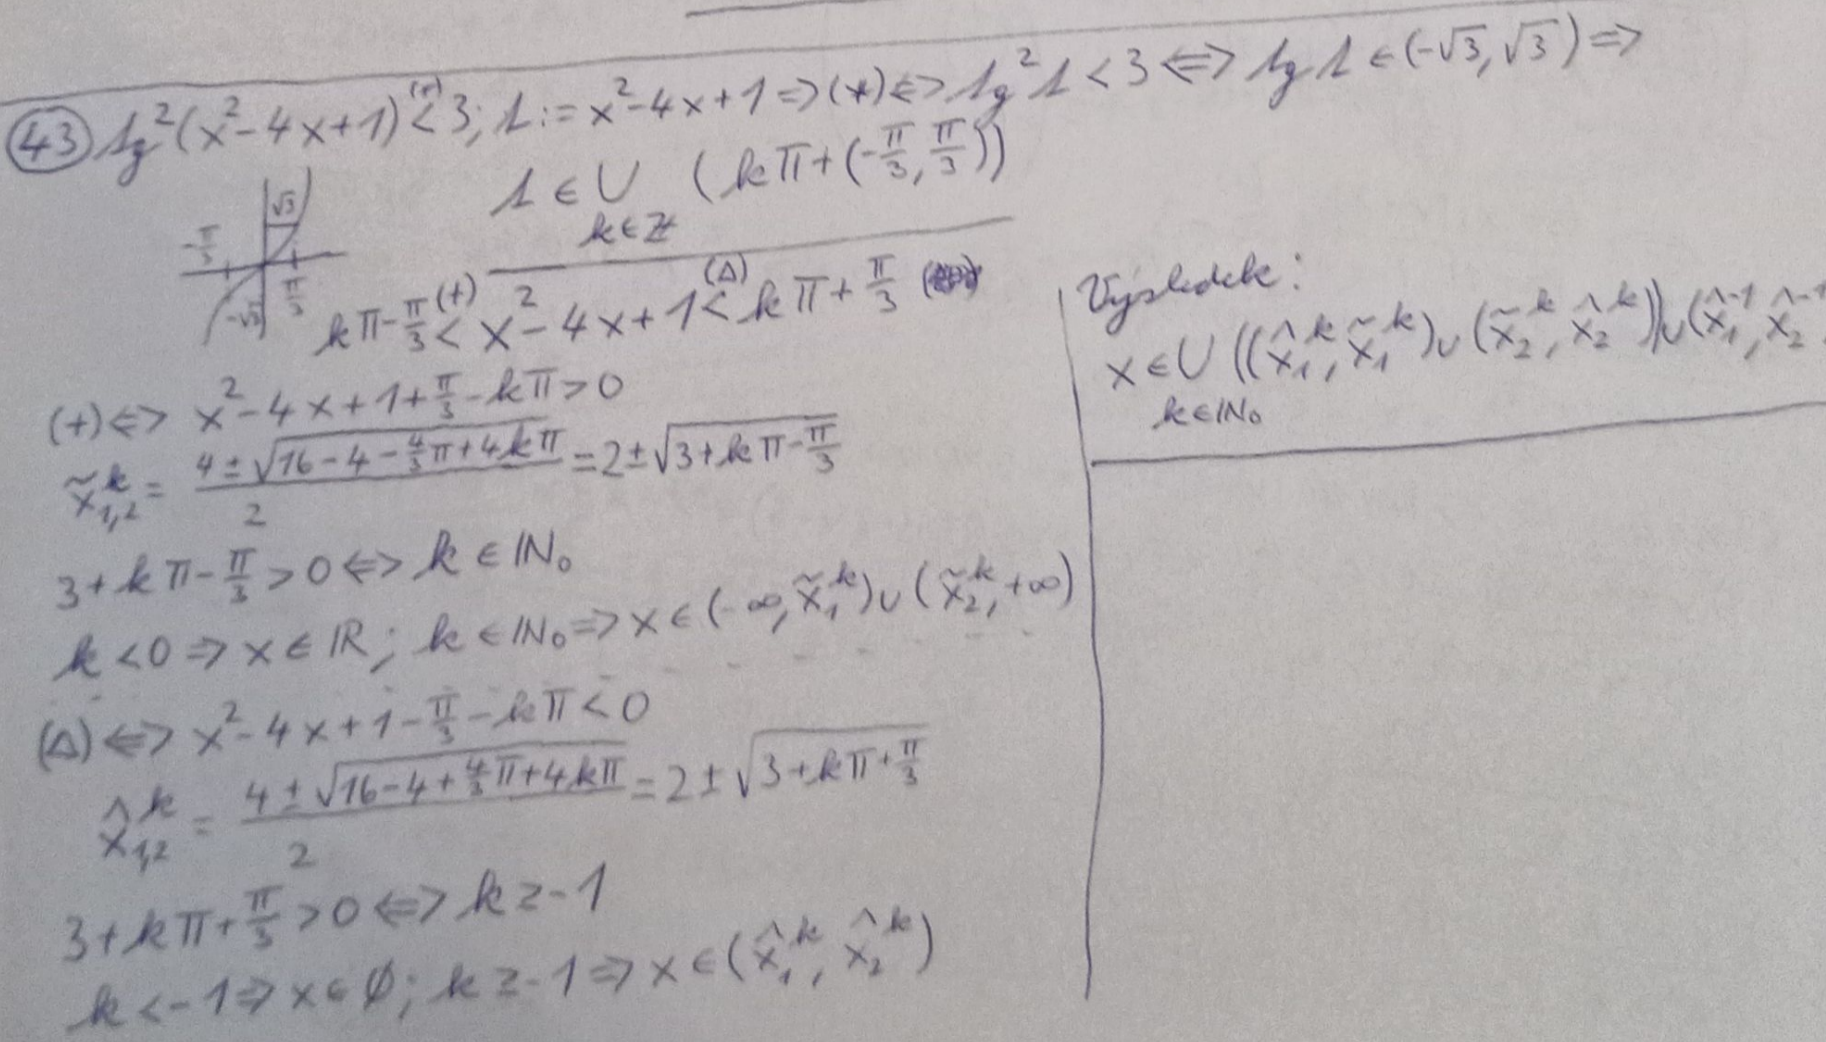 (43) tg²(x²-4x+1) <^(*) 3; t := x²-4x+1 ⇒ (*) ⇔ tg² t < 3 ⇔ tg t ∈ (-√3, √3) ⇒
t ∈ ∪_{k∈ℤ} (kπ + (-π/3, π/3))
√3
-π/3
π/3
-√3
kπ - π/3 <^(+) x² - 4x + 1 <^(Δ) kπ + π/3
(+) ⇔ x² - 4x + 1 + π/3 - kπ > 0
x̃^k_{1,2} = (4 ± √(16 - 4 - 4/3 π + 4kπ))/2 = 2 ± √(3 + kπ - π/3)
3 + kπ - π/3 > 0 ⇔ k ∈ ℕ₀
k < 0 ⇒ x ∈ ℝ; k ∈ ℕ₀ ⇒ x ∈ (-∞, x̃₁^k) ∪ (x̃₂^k, +∞)
(Δ) ⇔ x² - 4x + 1 - π/3 - kπ < 0
x̂^k_{1,2} = (4 ± √(16 - 4 + 4/3 π + 4kπ))/2 = 2 ± √(3 + kπ + π/3)
3 + kπ + π/3 > 0 ⇔ k ≥ -1
k < -1 ⇒ x ∈ ∅; k ≥ -1 ⇒ x ∈ (x̂₁^k, x̂₂^k)
Výsledek:
x ∈ ∪_{k∈ℕ₀} ((x̂₁^k, x̃₁^k) ∪ (x̃₂^k, x̂₂^k)) ∪ (x̂₁^-1, x̂₂^-1